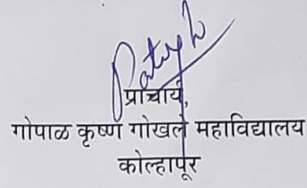 प्राचार्य,
गोपाळ कृष्ण गोखले महाविद्यालय
कोल्हापूर